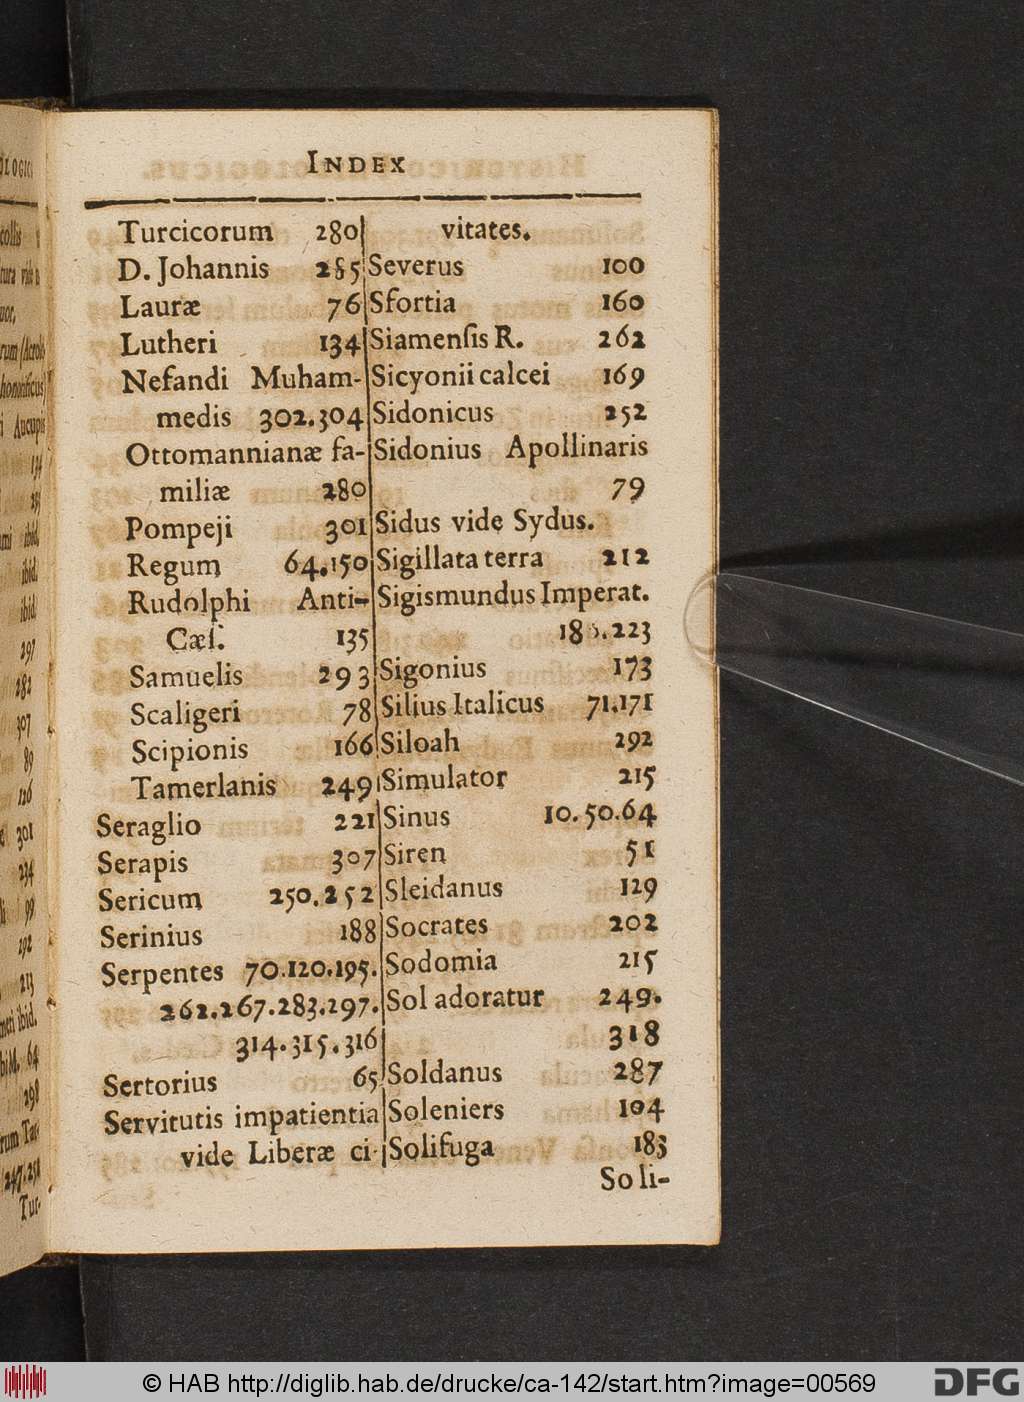 INDEX
Turcicorum 280
D. Johannis 285
Lauræ 76
Lutheri 134
Nefandi Muham-
medis 302.304
Ottomannianæ fa-
miliæ 280
Pompeji 301
Regum 64.150
Rudolphi Anti-
Cæſ. 135
Samuelis 293
Scaligeri 78
Scipionis 166
Tamerlanis 249
Seraglio 221
Serapis 307
Sericum 250.252
Serinius 188
Serpentes 70.120.195.
262.267.283.297.
314.315.316
Sertorius 65
Servitutis impatientia
vide Liberæ ci-
vitates.
Severus 100
Sfortia 160
Siamenſis R. 262
Sicyonii calcei 169
Sidonicus 252
Sidonius Apollinaris
79
Sidus vide Sydus.
Sigillata terra 212
Sigismundus Imperat.
223
Sigonius 173
Silius Italicus 71.171
Siloah 292
Simulator 215
Sinus 10.50.64
Siren 51
Sleidanus 129
Socrates 202
Sodomia 215
Sol adoratur 249.
318
Soldanus 287
Soleniers 104
Solifuga 183
Soli-
collis
Aucupis
134
ibid.
ibid.
ibid.
297
282
307
89
126
301
234
99
292
213
ibid.
64
298
247.251
Tur-
© HAB http://diglib.hab.de/drucke/ca-142/start.htm?image=00569
DFG